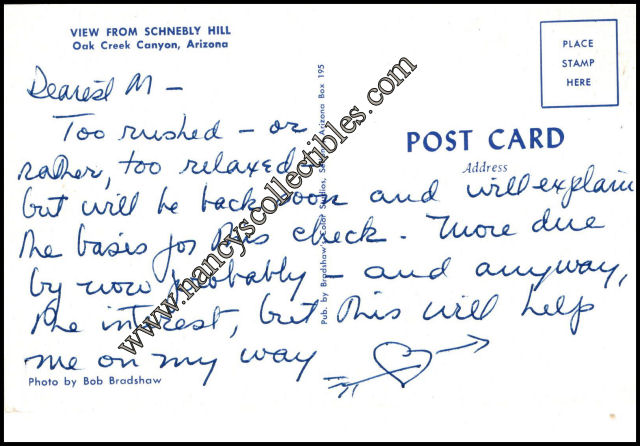 VIEW FROM SCHNEBLY HILL
Oak Creek Canyon, Arizona
PLACE
STAMP
HERE
Dearest M –
Too rushed – or
rather, too relaxed –
but will be back soon and will explain
the basis for this check. More due
by now probably – and anyway,
the interest, but this will help
me on my way
POST CARD
Address
Pub. by Bradshaw's Color Studios, Arizona Box 195
Photo by Bob Bradshaw
www.nancyscollectibles.com